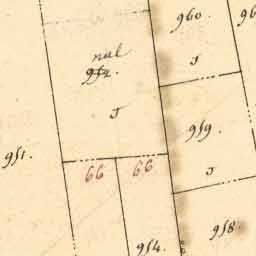 960.
96
nul
952.
J
J
959.
951.
J
66
66
958.
954.